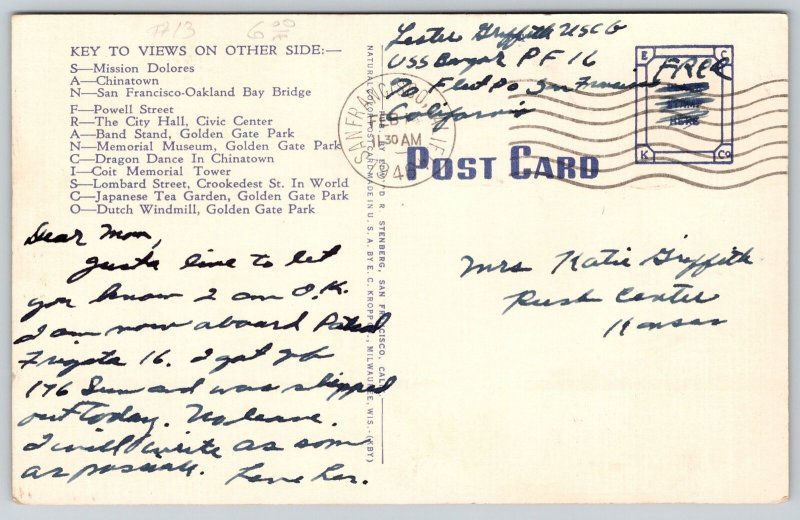 #13 6.00
KEY TO VIEWS ON OTHER SIDE:—
S—Mission Dolores
A—Chinatown
N—San Francisco-Oakland Bay Bridge
F—Powell Street
R—The City Hall, Civic Center
A—Band Stand, Golden Gate Park
N—Memorial Museum, Golden Gate Park
C—Dragon Dance In Chinatown
I—Coit Memorial Tower
S—Lombard Street, Crookedest St. In World
C—Japanese Tea Garden, Golden Gate Park
O—Dutch Windmill, Golden Gate Park
Dear Mom,
Justa line to let
you know I am O.K.
I am now aboard Patrol
Frigate 16. I got
176 Sun and was shipped
out Today. No leave.
I will write as soon
as
Love Les.
NATURAL COLOR POST CARD MADE IN U. S. A. BY E. C. KROPP CO., MILWAUKEE, WIS.-(KBY)
PUB. BY EDWARD R. STENBERG, SAN FRANCISCO, CALIF.
Lester Griffith USCG
USS Bangor PF 16
℅ Fleet Po San Francisco
California
SAN FRANCISCO, CALIF.
FEB
1 30 AM
POST CARD
E C
FREE
PLACE
STAMP
HERE
K Co
Mrs Katie Griffith
Rush Center
Kansas